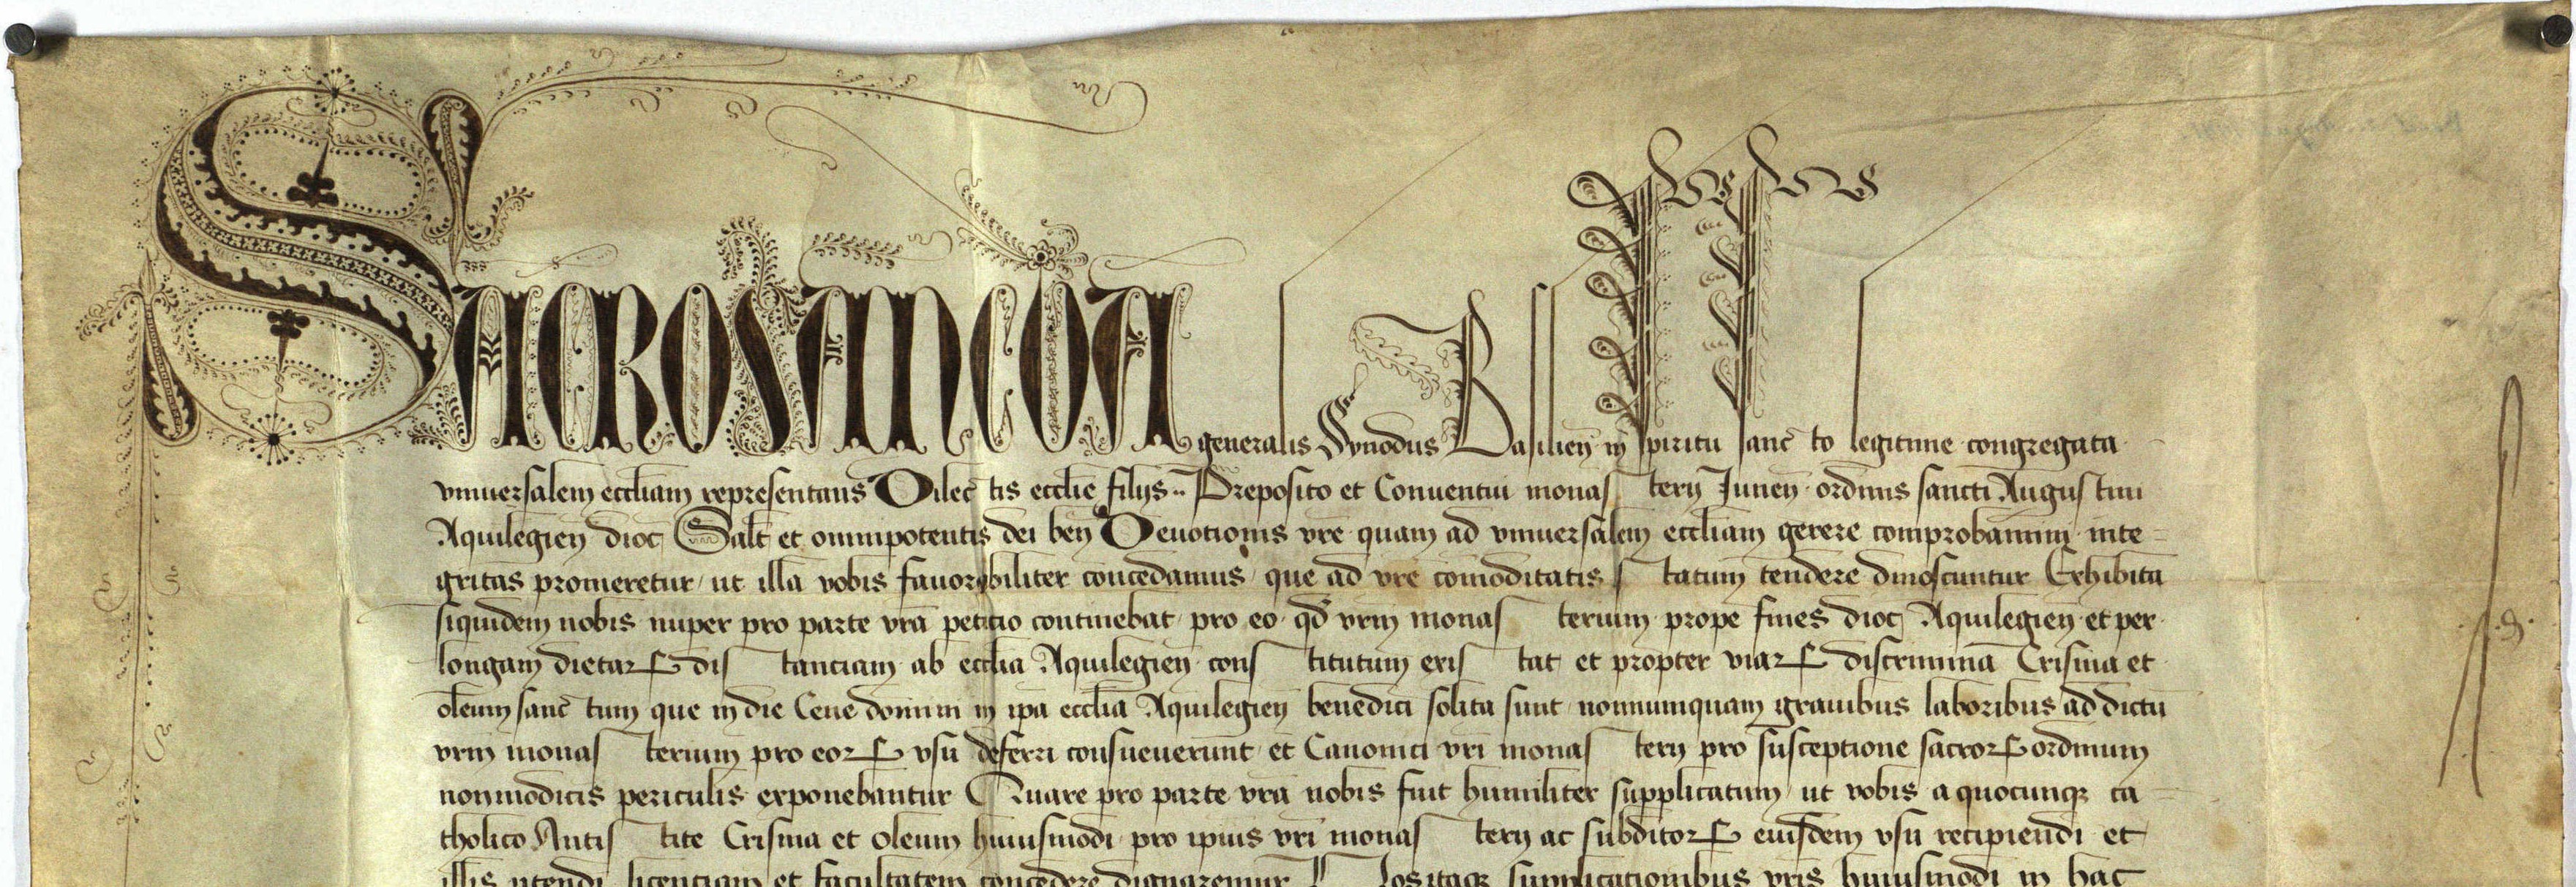 SACROSANCTA generalis Synodus Basilien̄ in spiritu sancto legitime congregata
vniuersalem eccl̄iam representans Dilectis eccl̄ie filijs .. Preposito et Conuentui monasterij Junen̄ ordinis sancti Augustini
Aquilegien̄ dioc̄ Salt̄ et omnipotentis dei ben̄ Deuotionis vr̄e quam ad vniuersalem eccl̄iam gerere comprobamini inte=
gritas promeretur ut illa vobis fauorabiliter concedamus que ad vr̄e com̄oditatis statum tendere dinoscuntur Exhibita
siquidem nobis nuper pro parte vr̄a petitio continebat pro eo qd̄ vr̄m monasterium prope fines dioc̄ Aquilegien̄ et per
longam dietarꝝ distanciam ab eccl̄ia Aquilegien̄ constitutum existat et propter viarꝝ discrimina Crisma et
oleum sanctum que in die Cene domini in ip̄a eccl̄ia Aquilegien̄ benedici solita sunt nonnumquam grauibus laboribus ad dictū
vr̄m monasterium pro eorꝝ vsu deferri consueuerunt et Canonici vr̄i monasterij pro susceptione sacrorꝝ ordinum
nonmodicis periculis exponebantur Quare pro parte vr̄a nobis fuit humiliter supplicatum ut vobis a quocunqꝫ ca=
tholico Antistite Crisma et oleum huiusmodi pro ip̄ius vr̄i monasterij ac subditorꝝ eiusdem vsu recipiendi et
illis utendi licentiam et facultatem concedere dignaremur Nos itaqꝫ supplicationibus vr̄is huiusmodi in hac